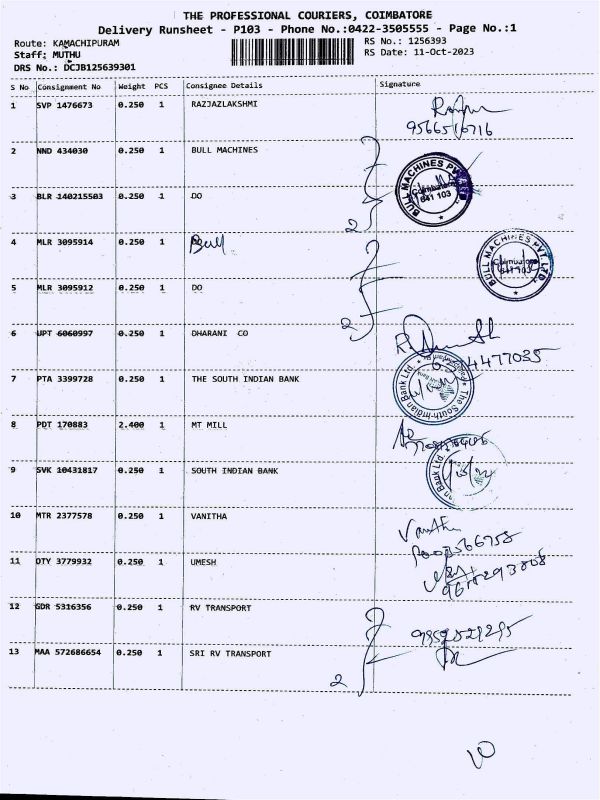 THE PROFESSIONAL COURIERS, COIMBATORE
Delivery Runsheet - P103 - Phone No.:0422-3505555 - Page No.:1
Route: KAMACHIPURAM
RS No.: 1256393
Staff: MUTHU
RS Date: 11-Oct-2023
DRS No.: DCJB125639301
S No Consignment No Weight PCS Consignee Details Signature
1 SVP 1476673 0.250 1 RAZJAZLAKSHMI
2 NND 434030 0.250 1 BULL MACHINES
BULL MACHINES PVT LTD
Coimbatore
641 103
3 BLR 140215503 0.250 1 DO
2
4 MLR 3095914 0.250 1 Bull
BULL MACHINES PVT. LTD.
Coimbatore
641 103
5 MLR 3095912 0.250 1 DO
2
6 UPT 6060997 0.250 1 DHARANI CO
7 PTA 3399728 0.250 1 THE SOUTH INDIAN BANK
The South Indian Bank Ltd.
8 PDT 170883 2.400 1 MT MILL
9 SVK 10431817 0.250 1 SOUTH INDIAN BANK
Bank Ltd.
10 MTR 2377578 0.250 1 VANITHA
11 OTY 3779932 0.250 1 UMESH
12 GDR 5316356 0.250 1 RV TRANSPORT
13 MAA 572686654 0.250 1 SRI RV TRANSPORT
2